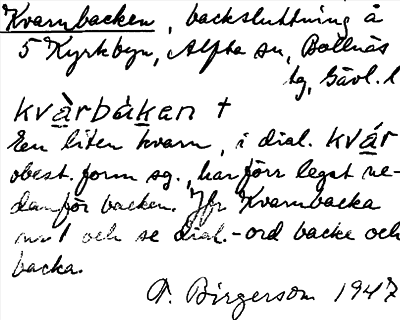 Kvarnbacken, backsluttning å
5 Kyrkbyn, Alfta sn, Bollnäs
tg, Gävl. l
kvàrbàkan +
Een liten kvarn, i dial. kvár
obest. form sg., har förr legat ne-
danför backen. Jfr Kvarnbacka
nr 1 och se dial.-ord backe och
backa.
F. Birgerson 1947